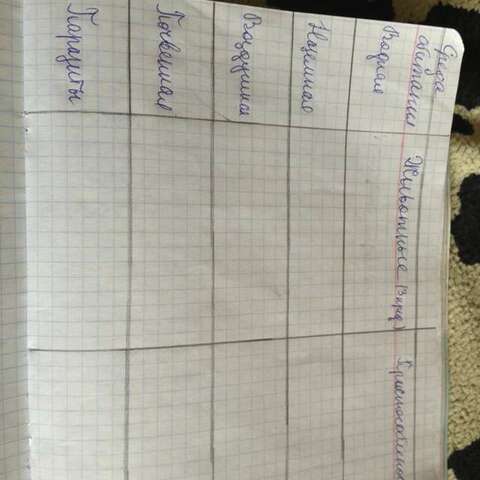 Среда
обитания
Животные (3 пред.)
Водная
Наземная
Воздушная
Почвенная
Паразиты